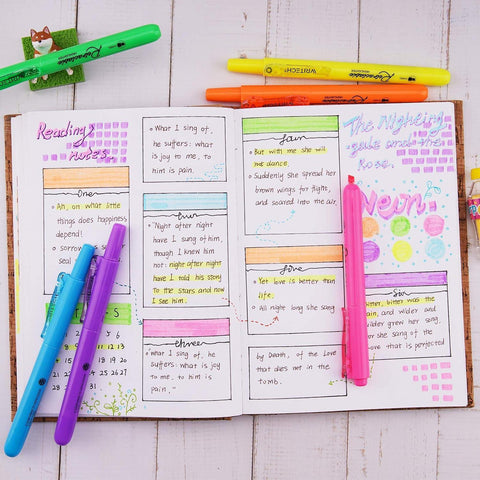 Retractable
WRITECH
Retractable
Retractable
Reading
notes.
One
Ah, on what little
things does happiness
depend!
sorrow
seal
S
What I sing of,
he suffers: what
is joy to me, to
him is pain.
"Night after night
have I sung of him,
though I knew him
not: night after night
have I told his story
to the stars and now
I see him.
three
"What I sing of, he
suffers: what is joy
to me, to him is
pain."
But with me she will
not dance,
Suddenly she spread her
brown wings for flight,
and soared into the air.
five
Yet love is better than
life.
All night long she song
by Death, of the Love
that dies not in the
tomb.
The Nightingale
gale and the
Rose.
Neon.
Six
Bitter, bitter was the
pain, and wilder and
wilder grew her song,
for she sang of the
Love that is perfected